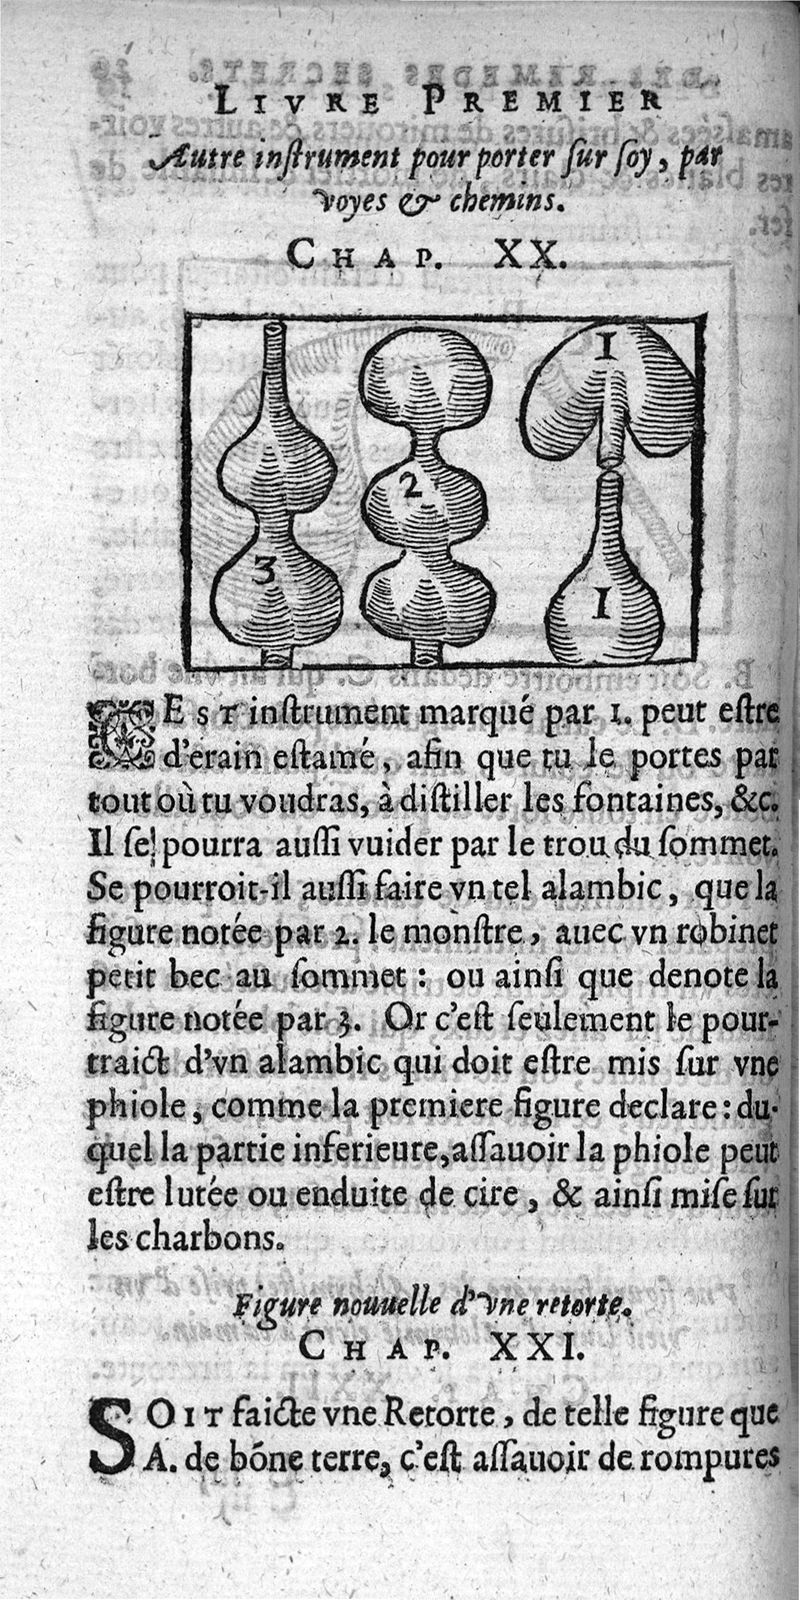 LIVRE PREMIER
Autre inſtrument pour porter ſur ſoy, par
voyes & chemins.
CHAP. XX.
1
2
3
1
CEST inſtrument marqué par 1. peut eſtre
d'erain eſtamé, afin que tu le portes par
tout où tu voudras, à diſtiller les fontaines, &c.
Il ſe pourra auſſi vuider par le trou du ſommet.
Se pourroit-il auſſi faire vn tel alambic, que la
figure notée par 2. le monſtre, auec vn robinet
petit bec au ſommet: ou ainſi que denote la
figure notée par 3. Or c'eſt ſeulement le pour-
traict d'vn alambic qui doit eſtre mis ſur vne
phiole, comme la premiere figure declare: du-
quel la partie inferieure, aſſauoir la phiole peut
eſtre lutée ou enduite de cire, & ainſi miſe ſur
les charbons.
Figure nouuelle d'vne retorte.
CHAP. XXI.
SOIT faicte vne Retorte, de telle figure que
A. de bōne terre, c'eſt aſſauoir de rompures